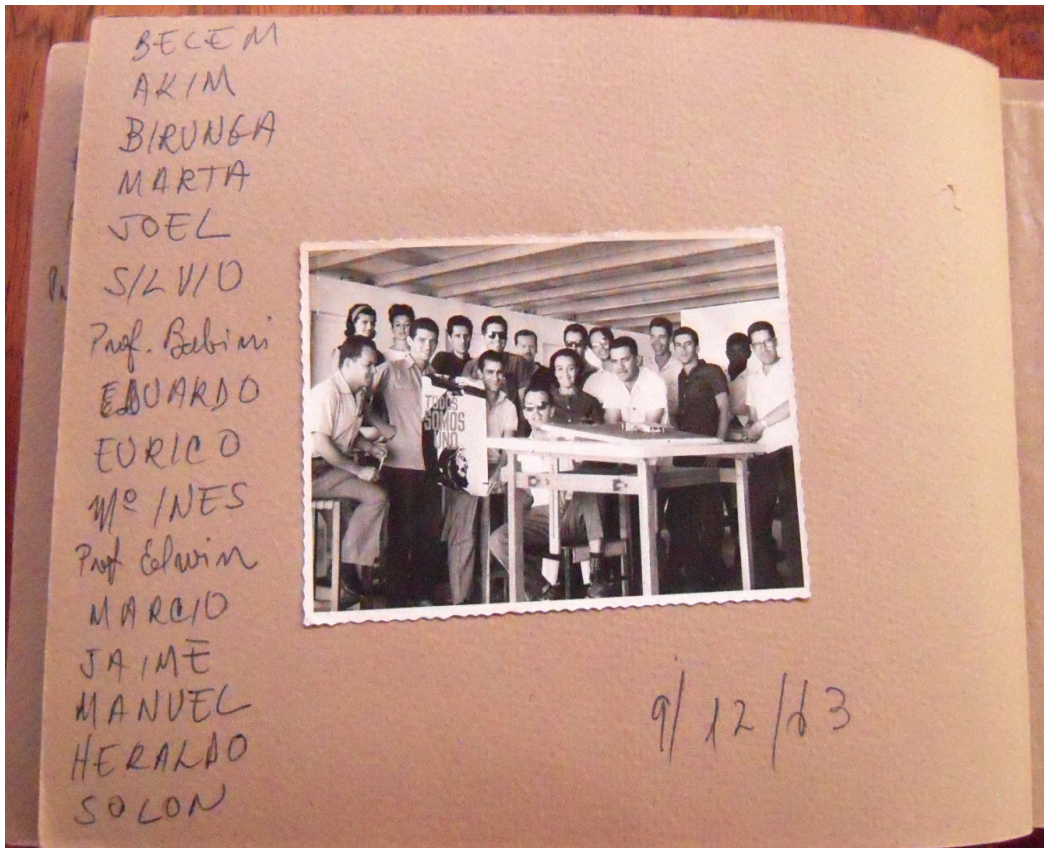 BECEM
AKIM
BIRUNGA
MARTA
JOEL
SILVIO
Prof. Babini
EDUARDO
EURICO
Mª INES
Prof Edwin
MARCIO
JAIME
MANUEL
HERALDO
SOLON
TODOS
SOMOS
UNO
9/12/63